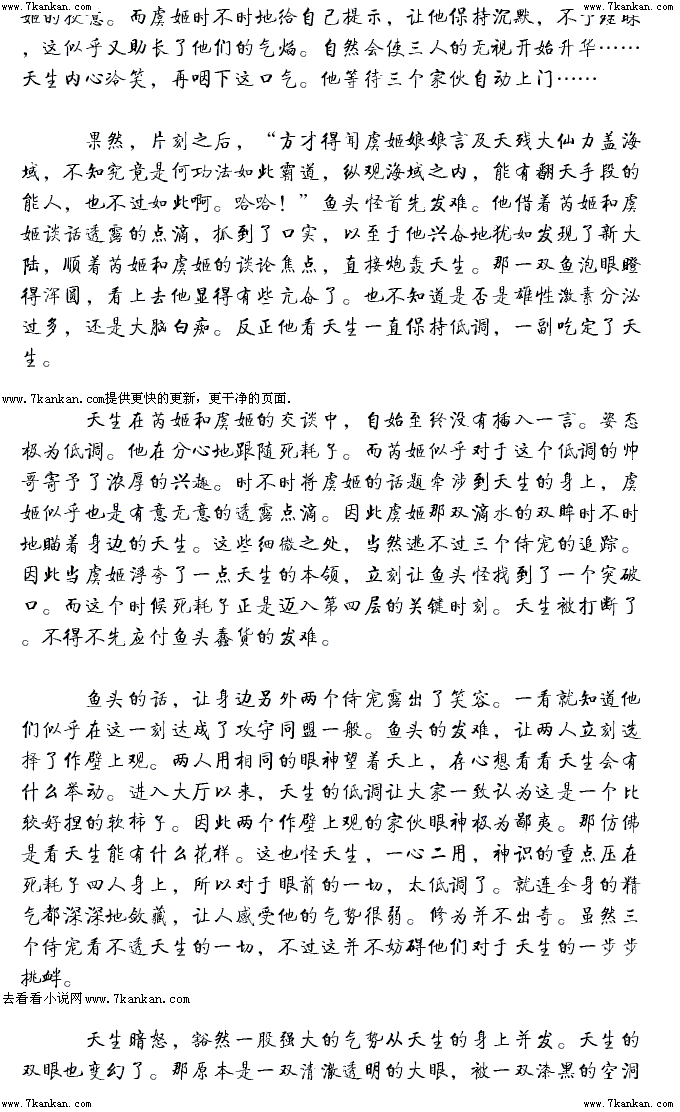 www.7kankan.com www.7kankan.com
姬的敌意。而虞姬时不时地给自己提示，让他保持沉默，不予理睬
，这似乎又助长了他们的气焰。自然会使三人的无视开始升华……
天生内心冷笑，再咽下这口气。他等待三个家伙自动上门……
果然，片刻之后，“方才得闻虞姬娘娘言及天残大仙力盖海
域，不知究竟是何功法如此霸道，纵观海域之内，能有翻天手段的
能人，也不过如此啊。哈哈！”鱼头怪首先发难。他借着芮姬和虞
姬谈话透露的点滴，抓到了口实，以至于他兴奋地犹如发现了新大
陆，顺着芮姬和虞姬的谈论焦点，直接炮轰天生。那一双鱼泡眼瞪
得浑圆，看上去他显得有些亢奋了。也不知道是否是雄性激素分泌
过多，还是大脑白痴。反正他看天生一直保持低调，一副吃定了天
生。
www.7kankan.com提供更快的更新，更干净的页面.
天生在芮姬和虞姬的交谈中，自始至终没有插入一言。姿态
极为低调。他在分心地跟随死耗子。而芮姬似乎对于这个低调的帅
哥寄予了浓厚的兴趣。时不时将虞姬的话题牵涉到天生的身上，虞
姬似乎也是有意无意的透露点滴。因此虞姬那双滴水的双眸时不时
地瞄着身边的天生。这些细微之处，当然逃不过三个侍宠的追踪。
因此当虞姬浮夸了一点天生的本领，立刻让鱼头怪找到了一个突破
口。而这个时候死耗子正是迈入第四层的关键时刻。天生被打断了
。不得不先应付鱼头蠢货的发难。
鱼头的话，让身边另外两个侍宠露出了笑容。一看就知道他
们似乎在这一刻达成了攻守同盟一般。鱼头的发难，让两人立刻选
择了作壁上观。两人用相同的眼神望着天上，存心想看看天生会有
什么举动。进入大厅以来，天生的低调让大家一致认为这是一个比
较好捏的软柿子。因此两个作壁上观的家伙眼神极为鄙夷。那仿佛
是看天生能有什么花样。这也怪天生，一心二用，神识的重点压在
死耗子四人身上，所以对于眼前的一切，太低调了。就连全身的精
气都深深地敛藏，让人感受他的气势很弱。修为并不出奇。虽然三
个侍宠看不透天生的一切，不过这并不妨碍他们对于天生的一步步
挑衅。
去看看小说网www.7kankan.com
天生暗怒，豁然一股强大的气势从天生的身上并发。天生的
双眼也变幻了。那原本是一双清澈透明的大眼，被一双漆黑的空洞
www.7kankan.com www.7kankan.com